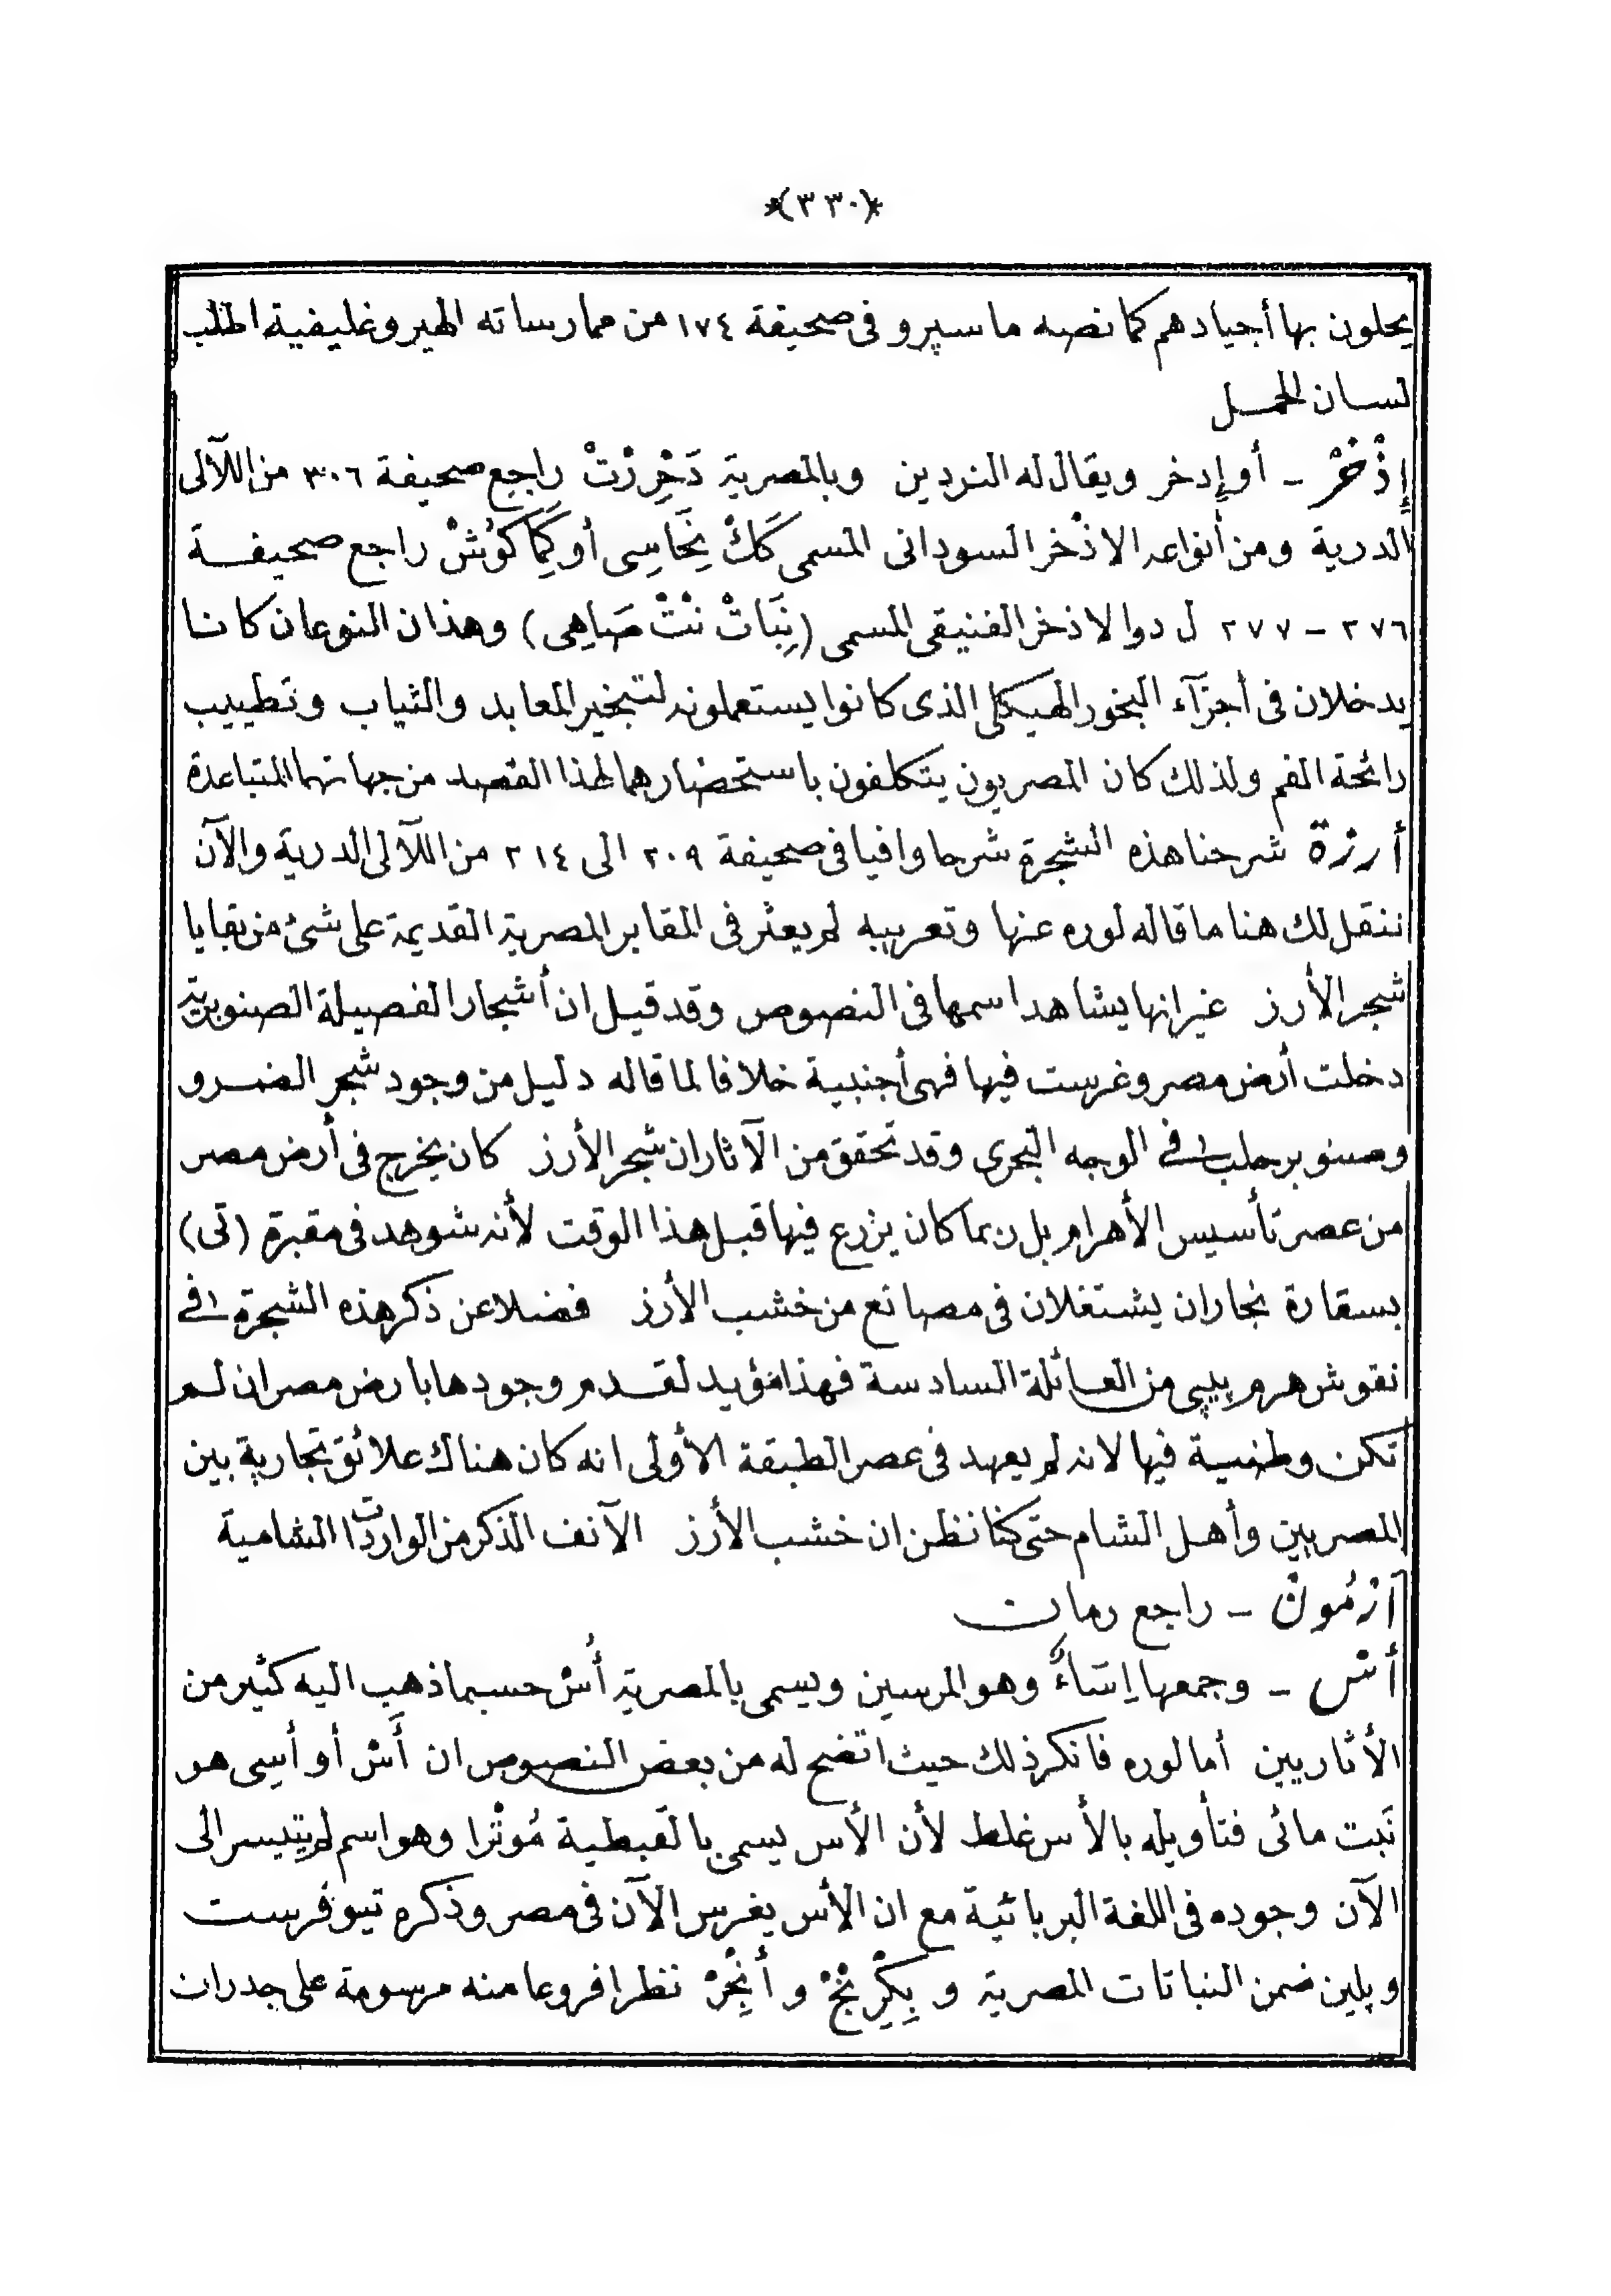 *(٣٣٠)*
يحلون بها أجيادهم كما نصه ماسپرو فى صحيفة ١٧٤ من ممارساته الهيروغليفية اطلب
لسان الحمل
إِذْخَرْ – أو إدخر ويقال له النردين وبالمصرية راجع صحيفة ٣٠٦ من اللآلى
الدرية ومن أنواعه الاذْخر السودانى المسمى أو راجع صحيفة
٢٧٦ – ٢٧٧ ل د والاذخر الفنيقى المسمى وهذان النوعان كانا
يدخلان فى أجزآء البخور الهيكلى الذى كانوا يستعملونه لتبخير المعابد والثياب وتطييب
رائحة الفم ولذلك كان المصريون يتكلفون باستحضارهما لهذا القصد من جهاتهما المتباعدة
أرزة شرحنا هذه الشجرة شرحا وافيا فى صحيفة ٢٠٩ الى ٢١٤ من اللآلى الدرية والآن
ننقل لك هنا ما قاله لوره عنها وتعريبه لم يعثر فى المقابر المصرية القديمة على شئ من بقايا
شجر الأرز غير انها يشاهد اسمها فى النصوص وقد قيل ان أشجار الفصيلة الصنوبرية
دخلت أرض مصر وغرست فيها فهى أجنبية خلافا لما قاله دليل من وجود شجر الضرو
وصنوبر حلب فى الوجه البحرى وقد تحقق من الآثار ان شجر الأرز كان يخرج فى أرض مصر
من عصر تأسيس الأهرام بل ربما كان يزرع فيها قبل هذا الوقت لأنه شوهد فى مقبرة (تى)
بسقارة نجاران يشتغلان فى مصانع من خشب الأرز فضلا عن ذكر هذه الشجرة فى
نقوش هرم پيپى من العائلة السادسة فهذا مؤيد لقدم وجودها بارض مصر ان لم
تكن وطنية فيها لانه لم يعهد فى عصر الطبقة الأولى انه كان هناك علائق تجارية بين
المصريين وأهل الشام حتى كنا نظن ان خشب الأرز الآنف الذكر من الواردات الشامية
أرْمُونْ – راجع رمان
أس – وجمعها وهو المرسين ويسمى بالمصرية أُسْ حسبما ذهب اليه كثير من
الأثاريين أما لوره فانكر ذلك حيث اتضح له من بعض النصوص ان أَسْ أو أسِى هو
نَبت مائى فتأويله بالأس غلط لأن الأس يسمى بالقبطية مُوثْرا وهو اسم لم يتيسر الى
الآن وجوده فى اللغة البربائية مع ان الأس يغرس الآن فى مصر وذكره تيوفرست
وپلين ضمن النباتات المصرية و و أنِجَرْ نظرا فروعا منه مرسومة على جدران